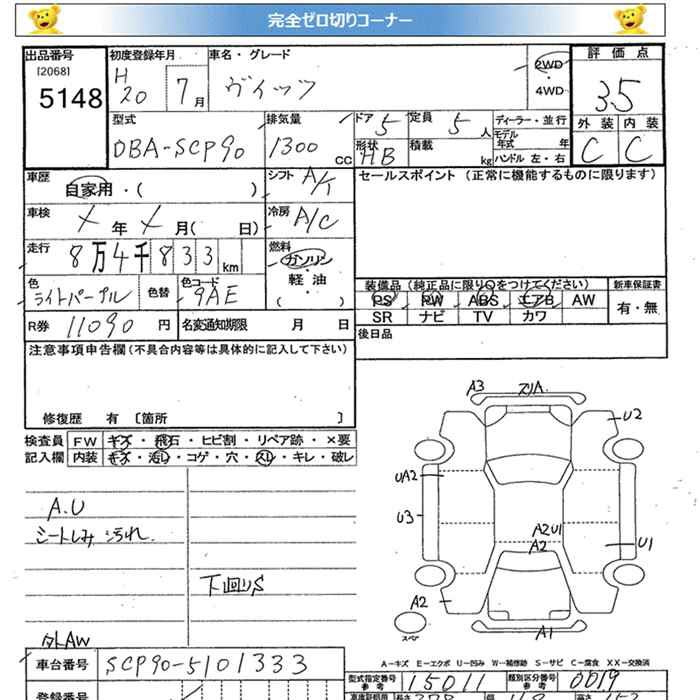 完全ゼロ切りコーナー
出品番号 初度登録年月 車名・グレード 評価点
[2068] H 2WD
5148 20 7月 ヴィッツ 4WD 3.5
型式 排気量 ドア 5 定員 5 人 ディーラー・並行 外装 内装
DBA-SCP90 1300 CC 形状 HB 積載 kg モデル年式 年 C C
ハンドル 左・右
車歴 自家用・( ) シフト A/T セールスポイント (正常に機能するものに限ります)
車検 X 年 X 月( 日) 冷房 A/C
走行 8万4千833km 燃料 ガソリン・軽油( )
色 ライトパープル 色替 色コード 9AE 装備品 (純正品に限り○をつけてください) 新車保証書
PS PW ABS エアB AW 有・無
SR ナビ TV カワ
R券 11090 円 名変通知期限 月 日 後日品
注意事項申告欄(不具合内容等は具体的に記入して下さい)
修復歴 有 〔箇所 〕
検査員 FW キズ・飛石・ヒビ割・リペア跡・×要
記入欄 内装 キズ・汚レ・コゲ・穴・スレ・キレ・破レ
A.U
シートしみ 汚れ.
下回りS
社外AW
A3 スリA
U2
UA2
U3
A2U1
A2
U1
A2
スペア
A1
A-キズ E-エクボ U-凹み W-補修跡 S-サビ C-腐食 XX-交換済
車台番号 SCP90-5101333
型式指定番号 参考 15011 類別区分番号 参考 0019
登録番号